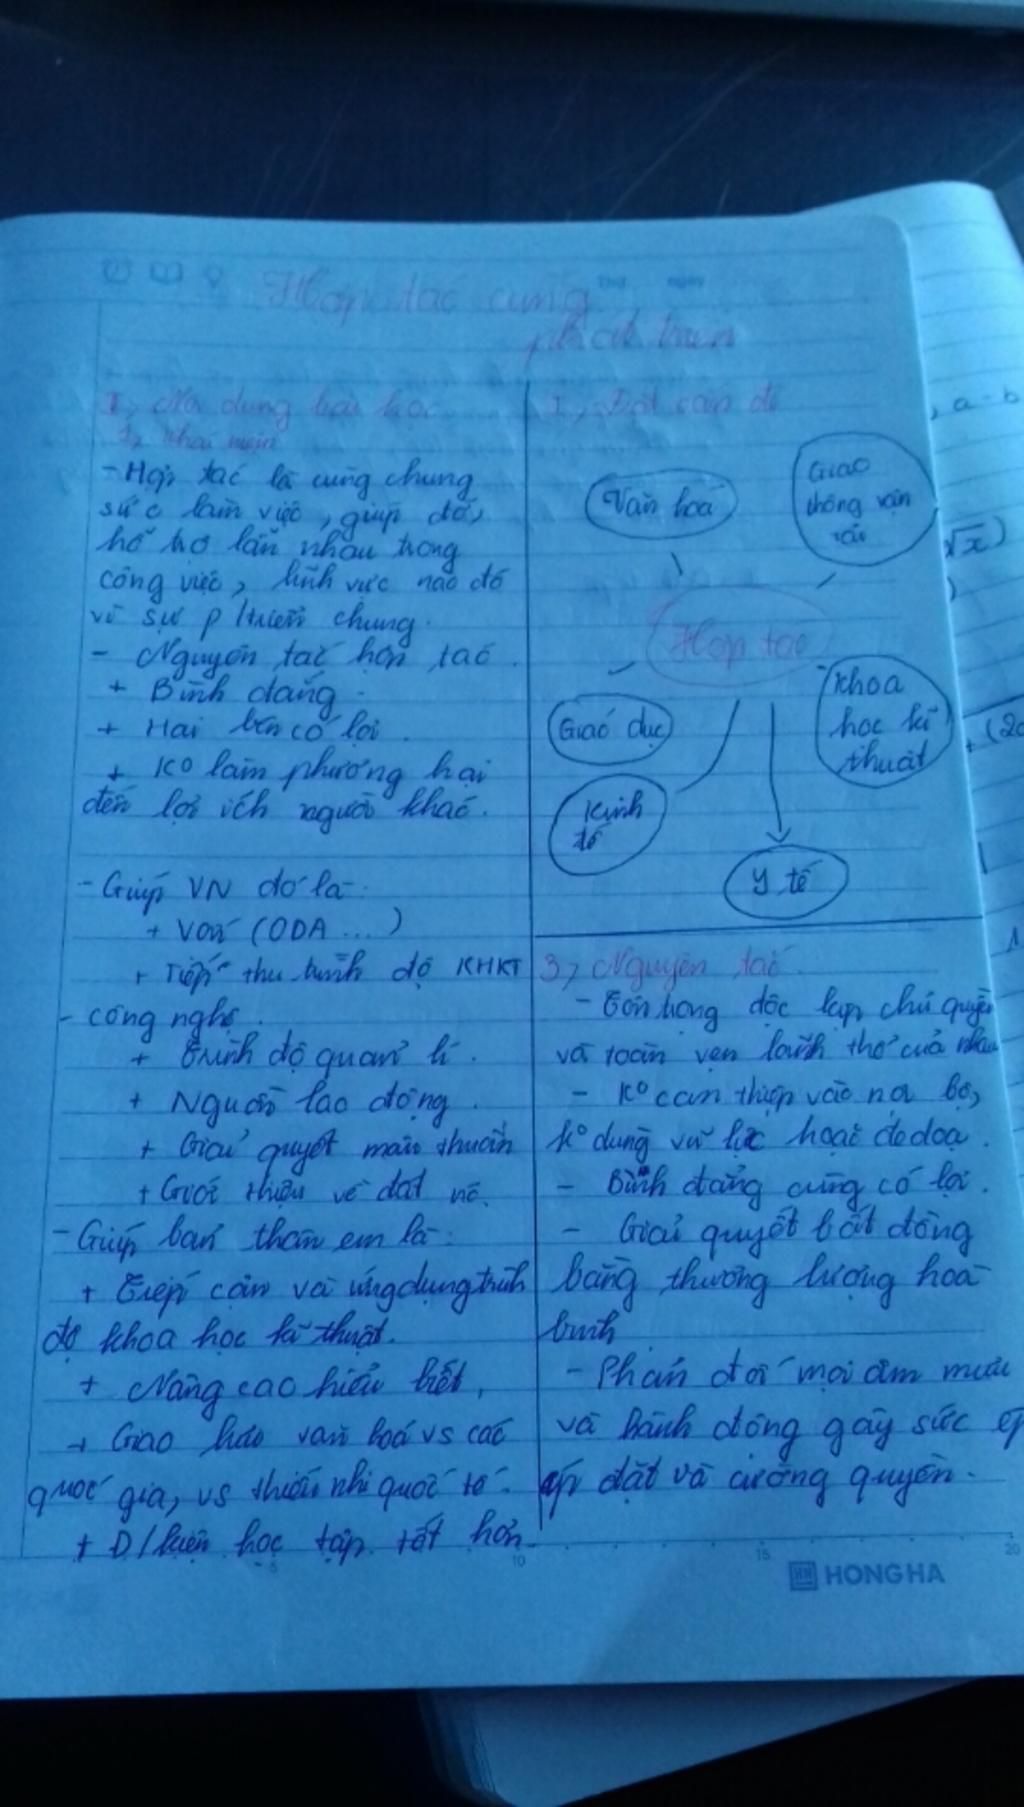 Hợp tác cùng
phát triển
I, Nội dung bài học
1, Khái niệm
- Hợp tác là cùng chung
sức làm việc, giúp đỡ,
hỗ trợ lẫn nhau trong
công việc, lĩnh vực nào đó
vì sự p/triển chung.
- Nguyên tắc hợp tác.
+ Bình đẳng.
+ Hai bên có lợi.
+ Ko làm phương hại
đến lợi ích người khác.
- Giúp VN đó là
+ Vốn (ODA...)
+ Tiếp thu trình độ KHKT
- công nghệ.
+ Trình độ quản lí.
+ Nguồn lao động.
+ Giải quyết mâu thuẫn
+ Giới thiệu về đất nc.
- Giúp bản thân em là:
+ Tiếp cận và ứng dụng trình
độ khoa học kĩ thuật.
+ Nâng cao hiểu biết,
+ Giao lưu văn hoá vs các
quốc gia, vs thiếu nhi quốc tế.
+ Đ/kiện học tập tốt hơn.
I, Đặt vấn đề
Văn hoá
Giao
thông vận
tải
Hợp tác
Giáo dục
Khoa
học kĩ
thuật
Kinh
tế
Y tế
3, Nguyên tắc
- Tôn trọng độc lập chủ quyền
và toàn vẹn lãnh thổ của nhau
- Ko can thiệp vào nội bộ,
ko dùng vũ lực hoặc đe doạ.
- Bình đẳng cùng có lợi.
- Giải quyết bất đồng
bằng thương lượng hoà
bình
- Phản đối mọi âm mưu
và hành động gây sức ép
áp đặt và cường quyền.
HONG HA